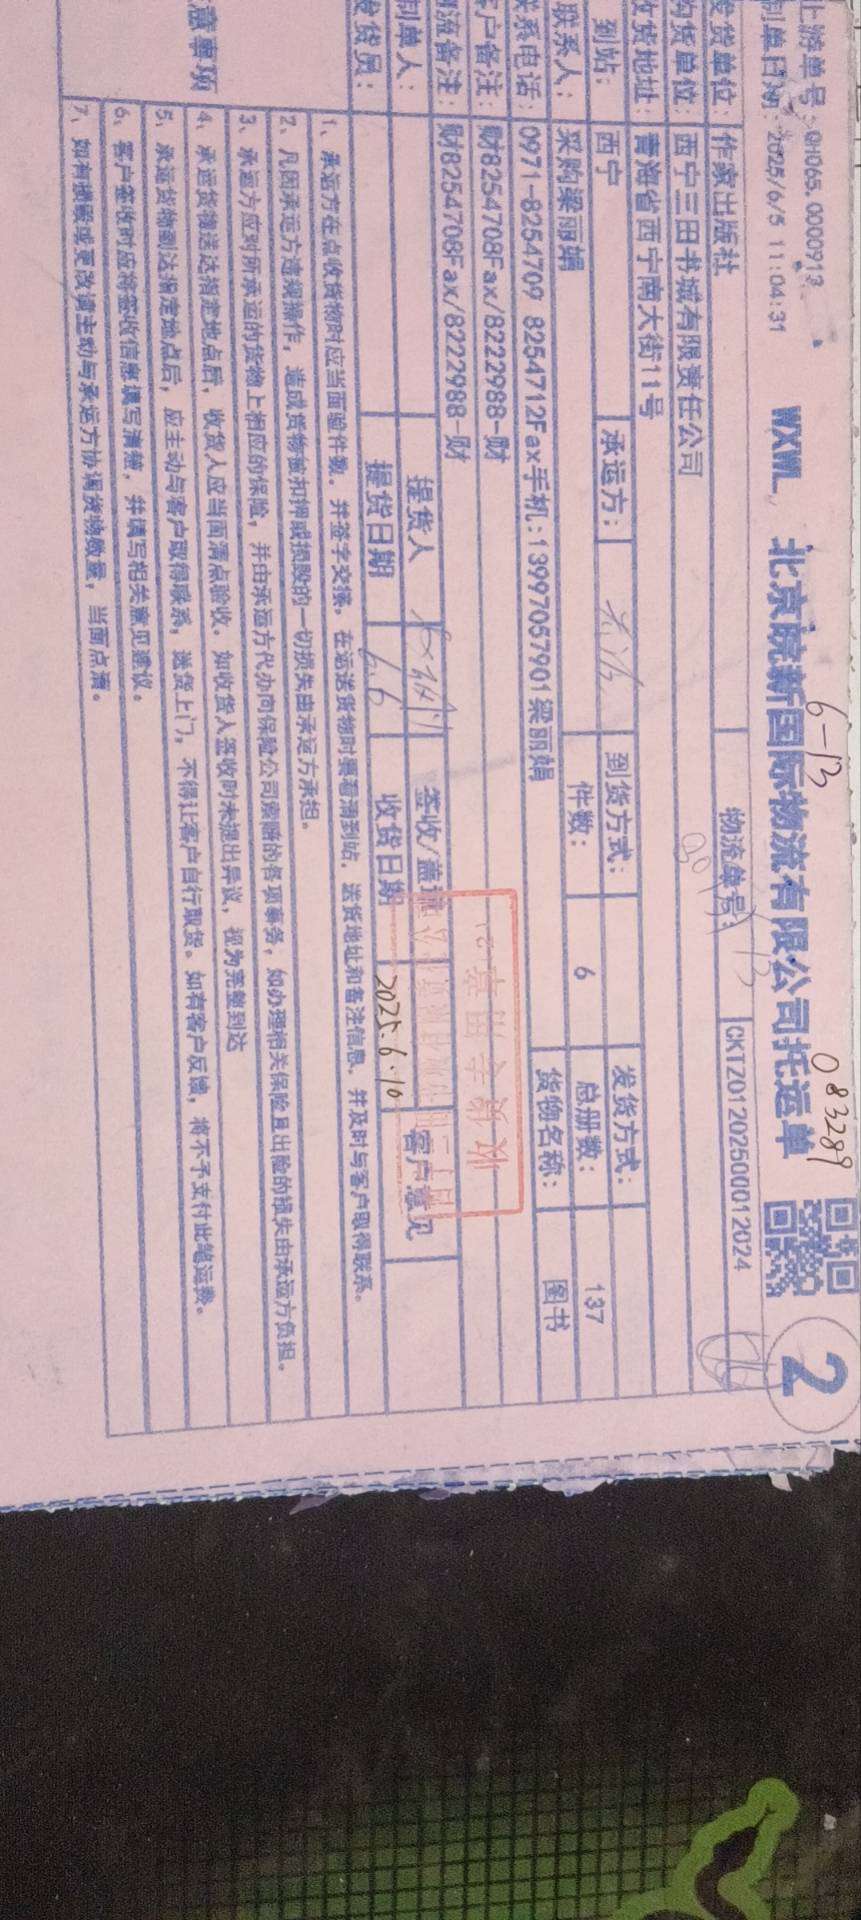 6-13
083289
上游单号：QH065.0000913
WXWL 北京皖新国际物流有限公司托运单
2
制单日期：2025/6/5 11:04:31
物流单号：
CKTZ0120250001​2024
发货单位：作家出版社
购货单位：西宁三田书城有限责任公司
收货地址：青海省西宁南大街11号
到站：西宁
承运方：
到货方式：
发货方式：
联系人：采购梁丽娟
件数：6
总册数：137
联系电话：0971-8254709 8254712Fax手机:13997057901梁丽娟
货物名称：图书
客户备注：财8254708Fax/8222988-财
物流备注：财8254708Fax/8222988-财
制单人：
提货人
签收/盖章
客户意见
发货员：
提货日期
6.6
收货日期
2025.6.10
注意事项
1、承运方在点收货物时应当面验件数，并签字交接，在运送货物时要看清到站，送货地址和备注信息，并及时与客户取得联系。
2、凡因承运方违规操作，造成货物被扣押或损毁的一切损失由承运方承担。
3、承运方应对所承运的货物上相应的保险，并由承运方代办向保险公司索赔的各项事务，如办理相关保险且出险的损失由承运方负担。
4、承运货物送达指定地点后，收货人应当面清点验收。如收货人签收时未提出异议，视为完整到达
5、承运货物到达指定地点后，应主动与客户取得联系，送货上门，不得让客户自行取货。如有客户反馈，将不予支付此笔运费。
6、客户签收时应将签收信息填写清楚，并填写相关意见建议。
7、如有损毁或更改请主动与承运方协调货物数量，当面点清。